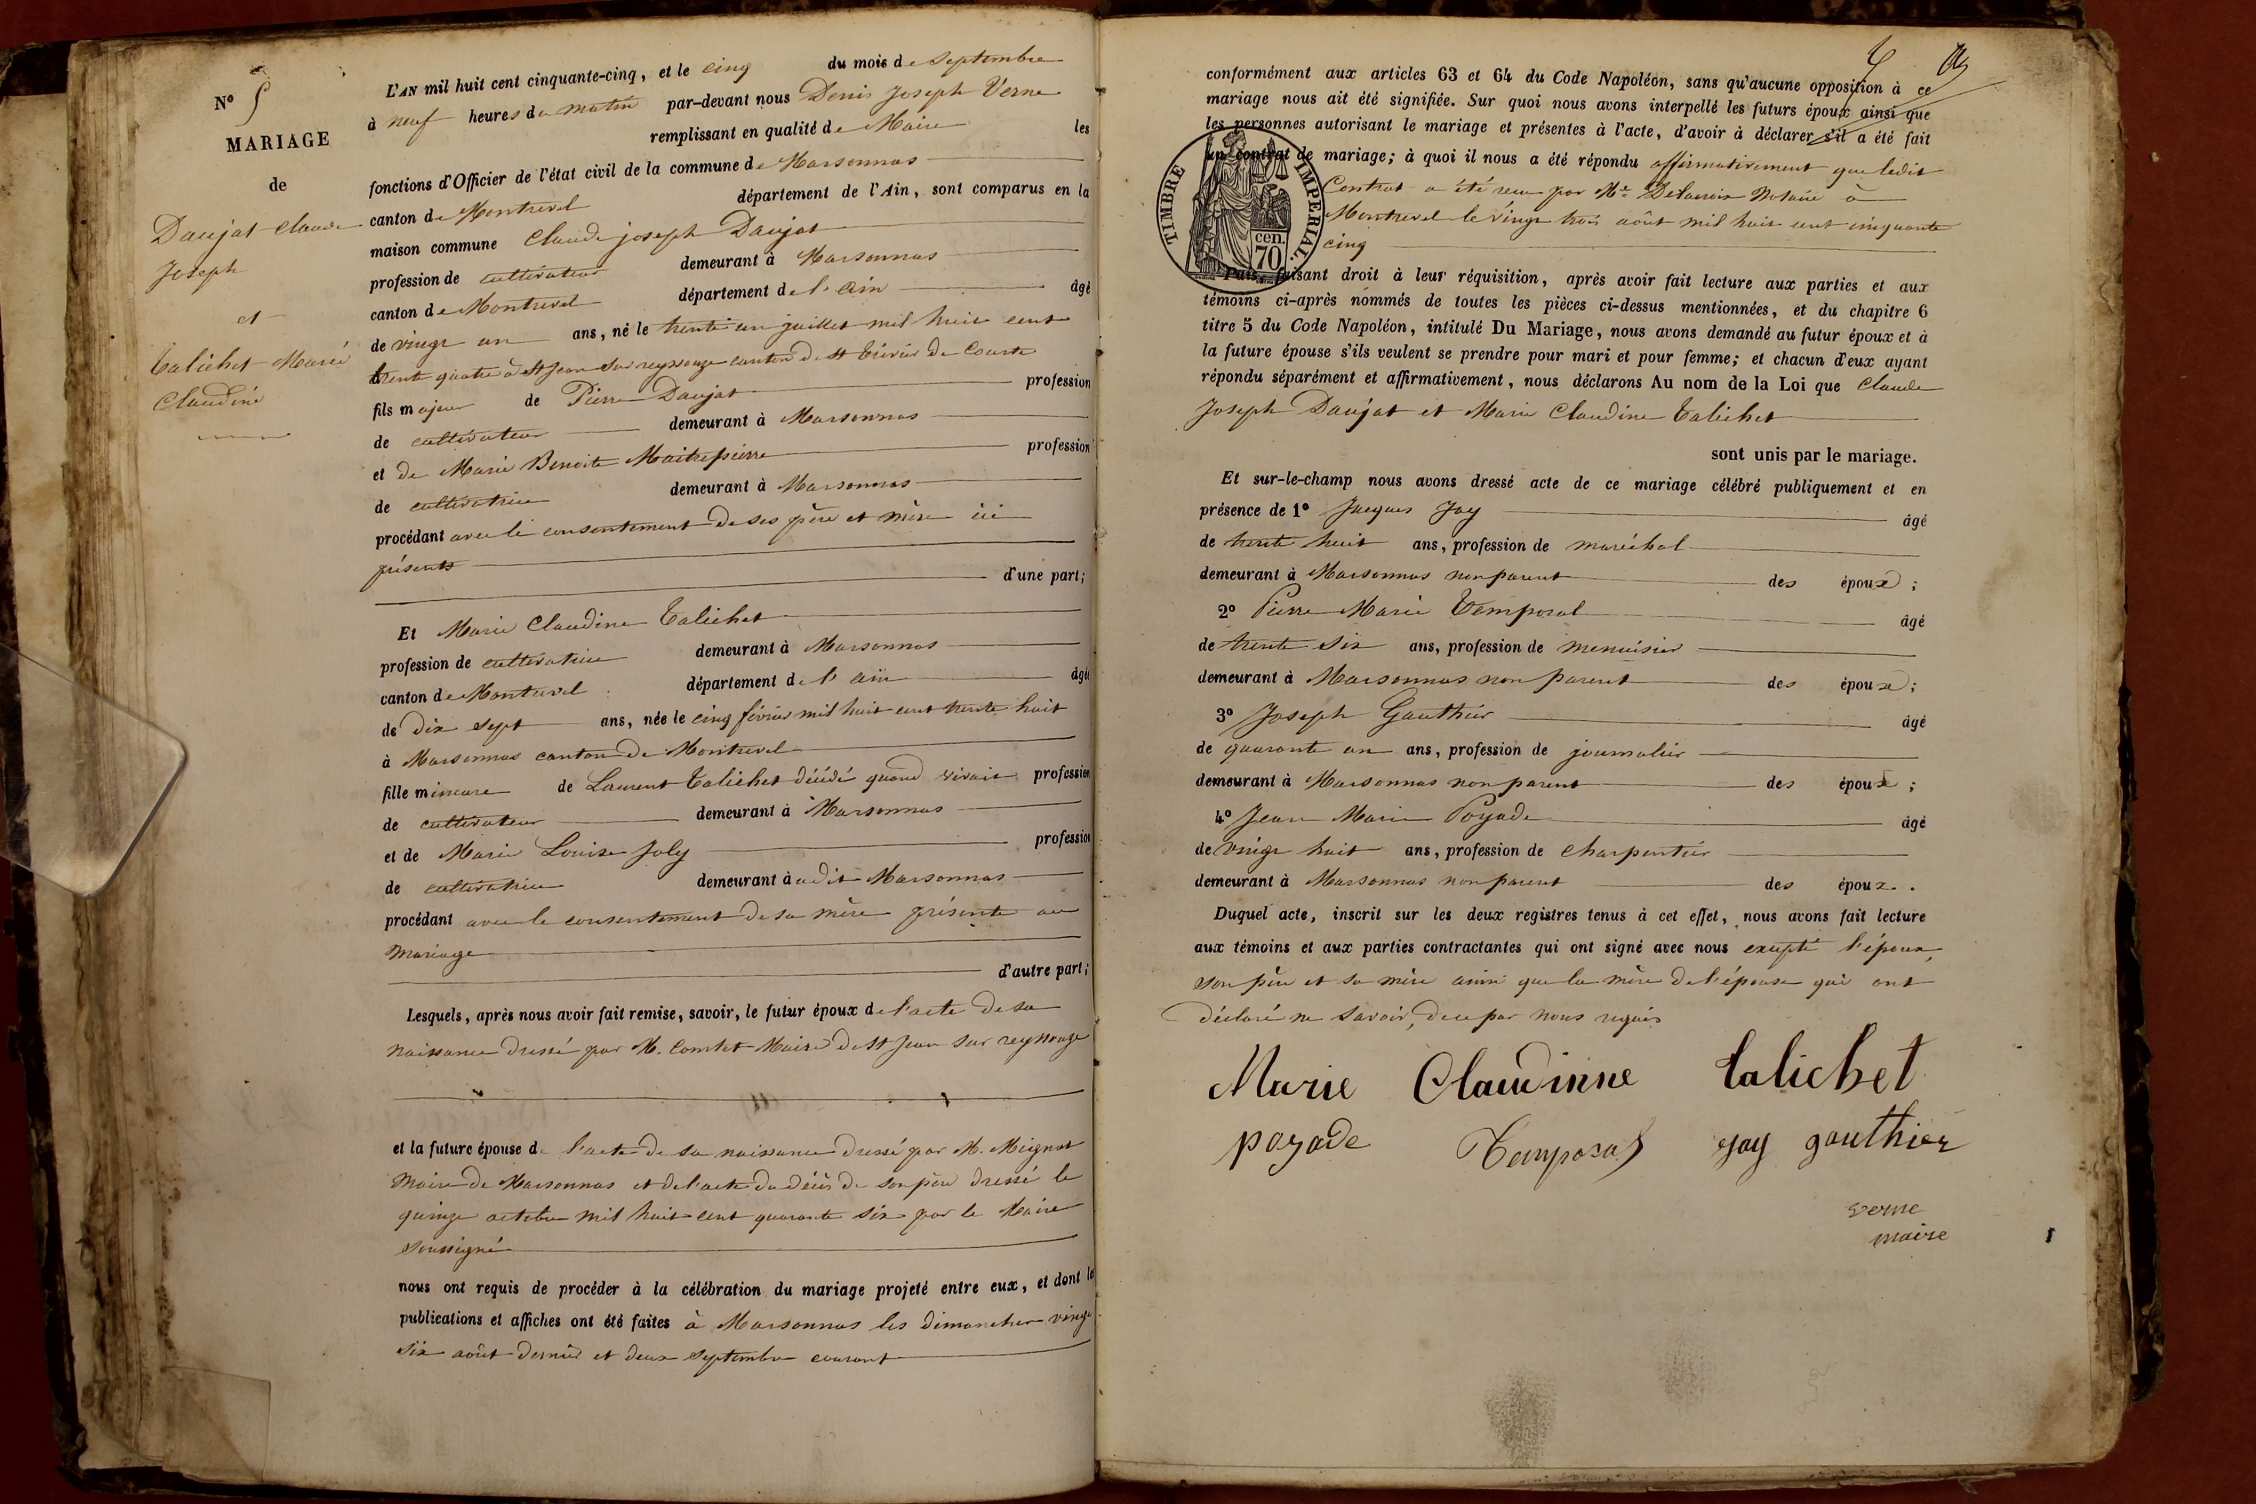 N° 5
MARIAGE
de
Daujat Claude
Joseph
et
Talichet Marie
Claudine
L'AN mil huit cent cinquante-cinq, et le cinq du mois de Septembre
à neuf heures du matin par-devant nous Denis Joseph Verne
remplissant en qualité de Maire les
fonctions d'Officier de l'état civil de la commune de Marsonnas
canton de Montrevel département de l'Ain, sont comparus en la
maison commune Claude joseph Daujat
profession de cultivateur demeurant à Marsonnas
canton de Montrevel département de l'ain âgé
de vingt un ans, né le trente un juillet mil huit cent
trente quatre à St Jean sur reyssouze canton de St trivier de Courte
fils majeur de Pierre Daujat profession
de cultivateur demeurant à Marsonnas
et de Marie Benoite Maitrepierre profession
de cultivatrice demeurant à Marsonnas
procédant avec le consentement de ses père et mère ici
présents
d'une part;
Et Marie Claudine Talichet
profession de cultivatrice demeurant à Marsonnas
canton de Montrevel département de l'ain âgée
de dix sept ans, née le cinq février mil huit cent trente huit
à Marsonnas canton de Montrevel
fille mineure de Laurent Talichet décédé quand vivait profession
de cultivateur demeurant à Marsonnas
et de Marie Louise Joly profession
de cultivatrice demeurant à udit Marsonnas
procédant avec le consentement de sa mère présente au
mariage
d'autre part;
Lesquels, après nous avoir fait remise, savoir, le futur époux de l'acte de sa
naissance dressé par M. Comtet Maire de St Jean sur reyssouze
et la future épouse de l'acte de sa naissance dressé par M. Mignot
Maire de Marsonnas et de l'acte du décès de son père dressé le
quinze octobre mil huit cent quarante six par le Maire
soussigné
nous ont requis de procéder à la célébration du mariage projeté entre eux, et dont les
publications et affiches ont été faites à Marsonnas les dimanches vingt
six août dernier et deux septembre courant
conformément aux articles 63 et 64 du Code Napoléon, sans qu'aucune opposition à ce
mariage nous ait été signifiée. Sur quoi nous avons interpellé les futurs époux ainsi que
les personnes autorisant le mariage et présentes à l'acte, d'avoir à déclarer s'il a été fait
un contrat de mariage; à quoi il nous a été répondu affirmativement que ledit
Contrat a été reçu par Me Notaire à
Montrevel le vingt trois août mil huit cent cinquante
cinq
TIMBRE IMPERIAL.
cen.
70
Puis, faisant droit à leur réquisition, après avoir fait lecture aux parties et aux
témoins ci-après nommés de toutes les pièces ci-dessus mentionnées, et du chapitre 6
titre 5 du Code Napoléon, intitulé Du Mariage, nous avons demandé au futur époux et à
la future épouse s'ils veulent se prendre pour mari et pour femme; et chacun d'eux ayant
répondu séparément et affirmativement, nous déclarons Au nom de la Loi que Claude
Joseph Daujat et Marie Claudine Talichet
sont unis par le mariage.
Et sur-le-champ nous avons dressé acte de ce mariage célébré publiquement et en
présence de 1° Jacques Jay âgé
de trente huit ans, profession de maréchal
demeurant à Marsonnas non parent des époux;
2° Pierre Marie Temporal âgé
de trente six ans, profession de menuisier
demeurant à Marsonnas non parent des époux;
3° Joseph Gauthier âgé
de quarante un ans, profession de journalier
demeurant à Marsonnas non parent des époux;
4° Jean Marie Poyade âgé
de vingt huit ans, profession de charpentier
demeurant à Marsonnas non parent des époux.
Duquel acte, inscrit sur les deux registres tenus à cet effet, nous avons fait lecture
aux témoins et aux parties contractantes qui ont signé avec nous excepté l'époux,
son père et sa mère ainsi que la mère de l'épouse qui ont
déclaré ne savoir, de ce par nous requis
Marie Claudinne talichet
poyade Temporal jay gauthier
verne
maire